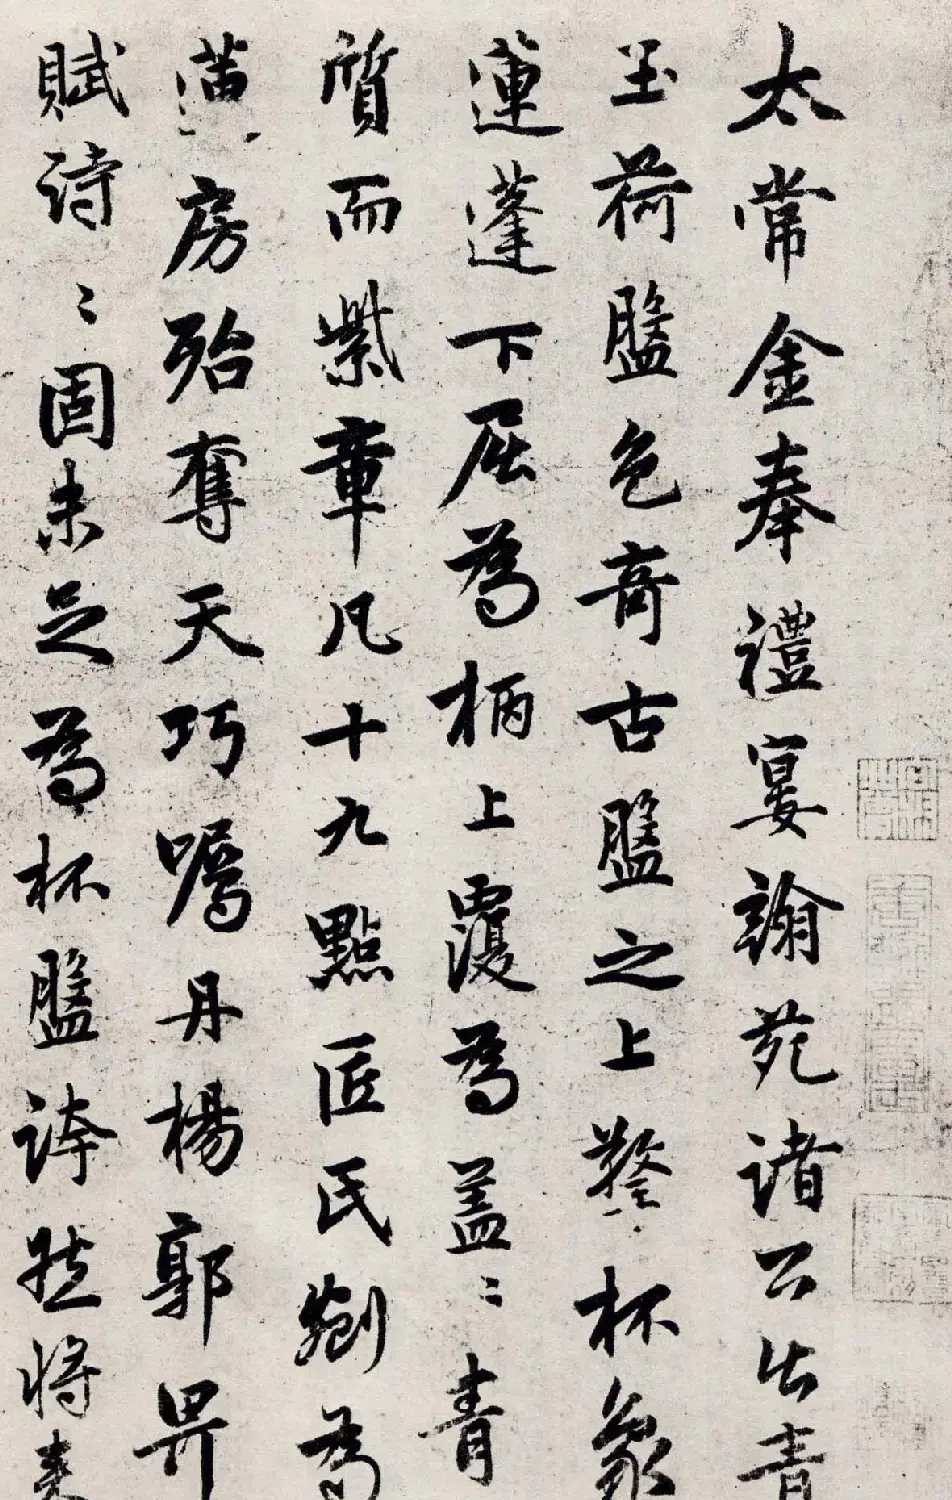 太常金奉禮宴翰苑諸公出青
玉荷盤色奇古盤之上擎杯象
蓮蓬下屈為柄上覆為蓋〻青
質而紫章凡十九點匠氏劖為
蕳房殆奪天巧嘱丹楊郭畀
賦詩〻固未足為杯盤誇然將來